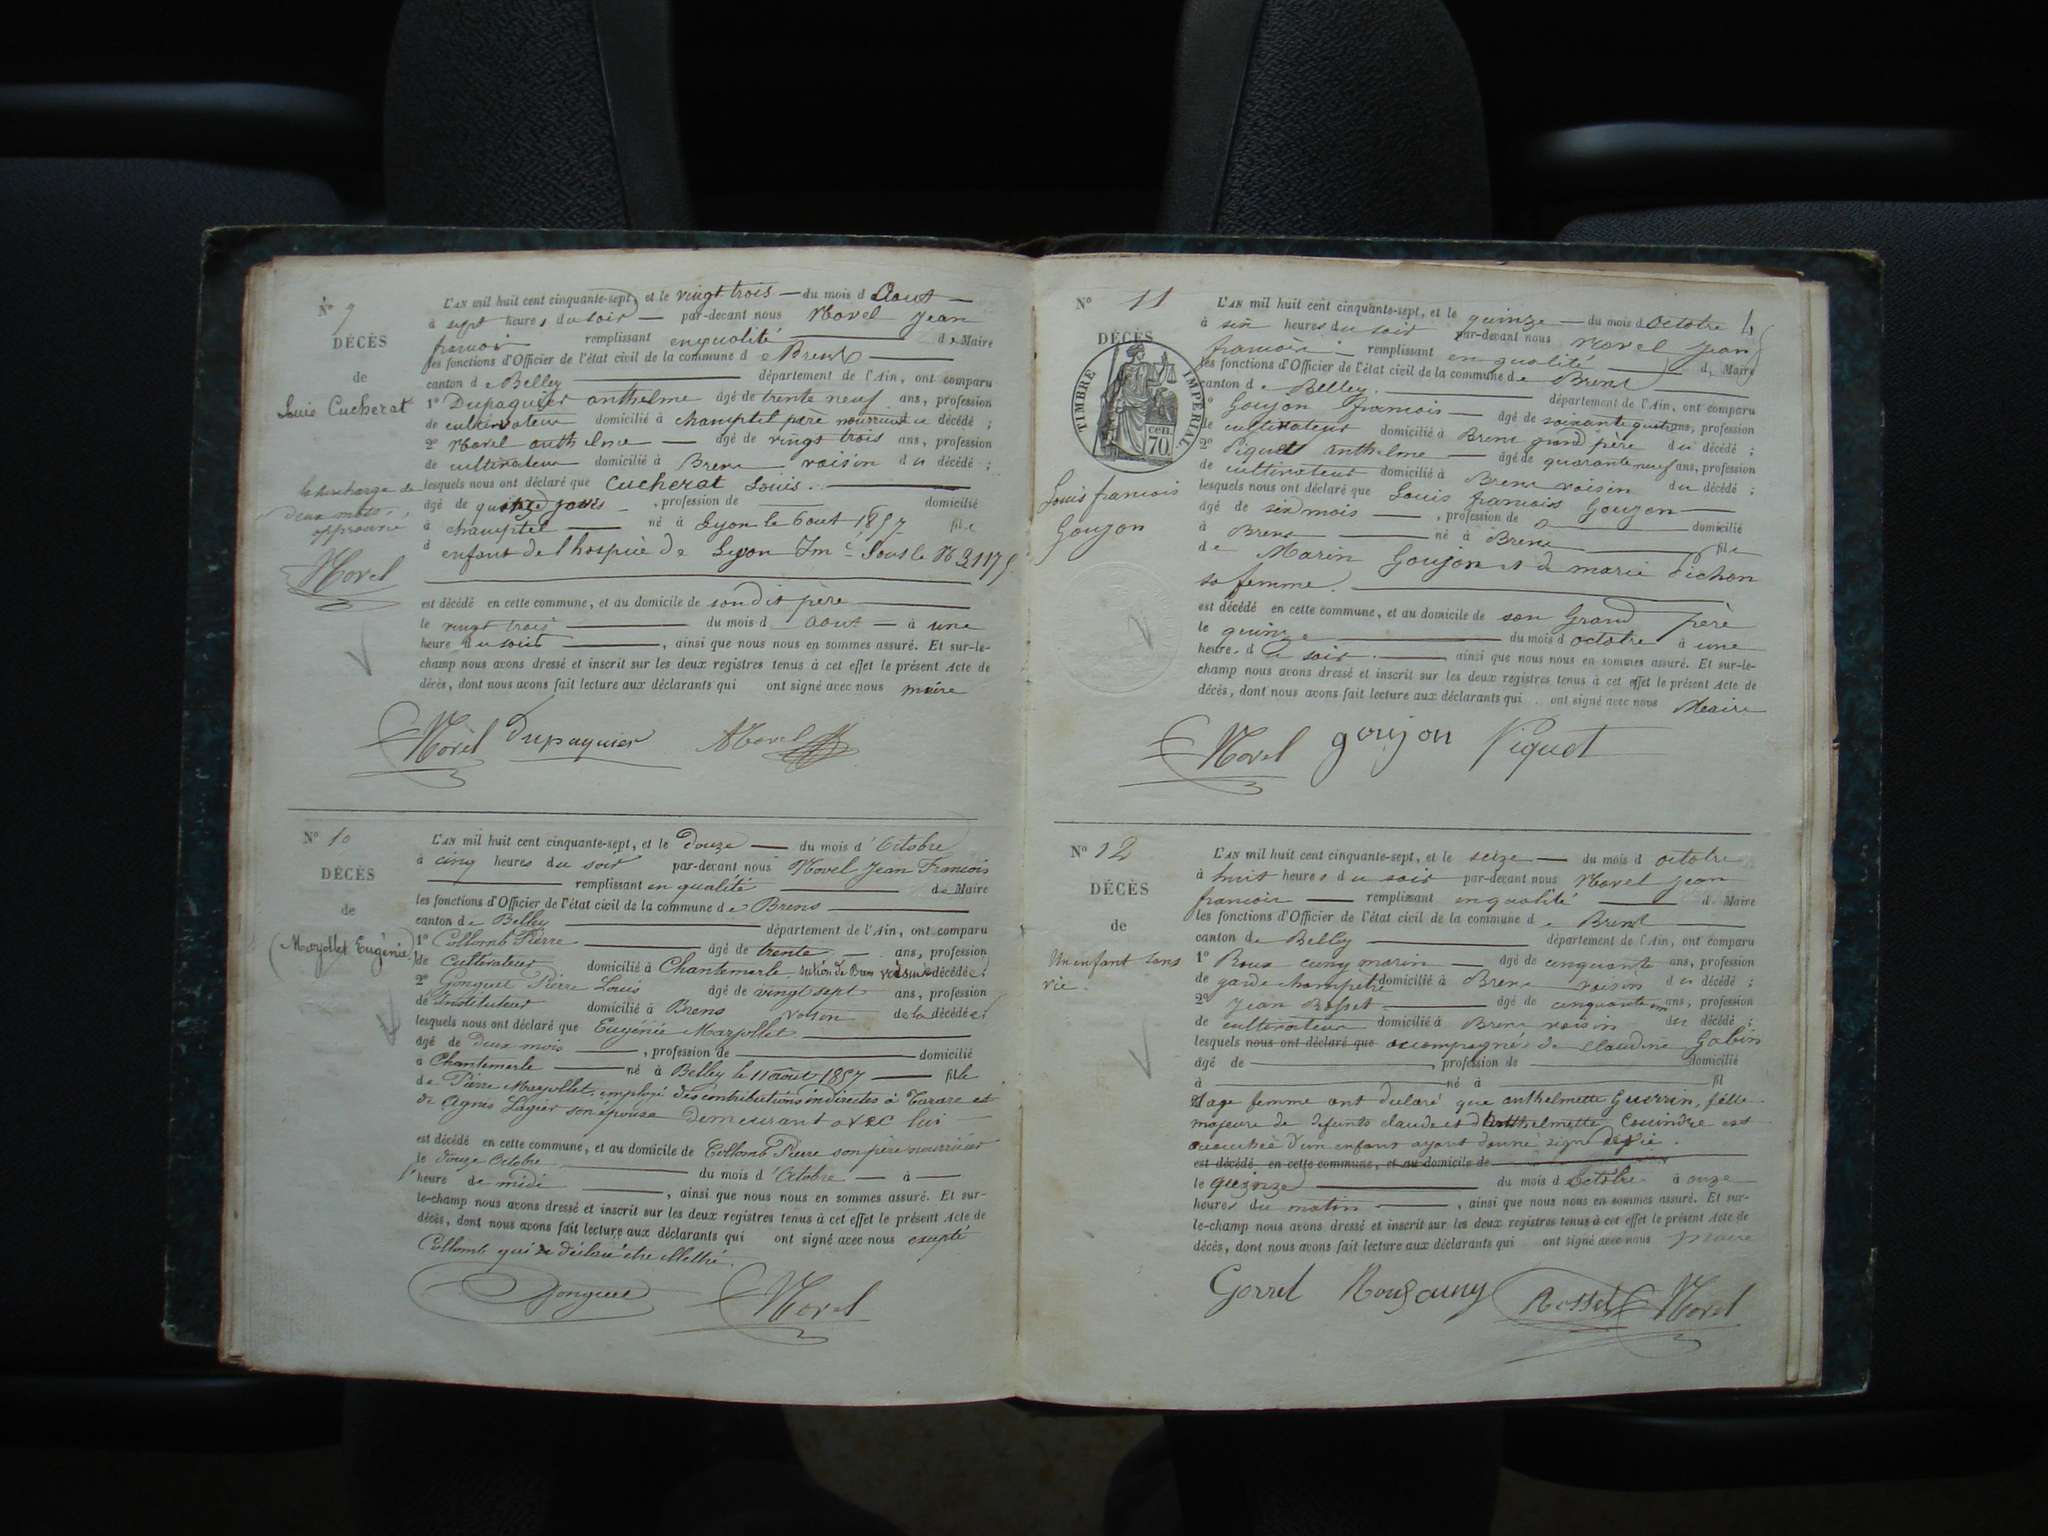 N° 9
DÉCÈS
de
Louis Cucherat
la surcharge de
deux mots
approuvée
Morel
L'AN mil huit cent cinquante-sept, et le vingt trois — du mois d Aout —
à sept heures du soir — par-devant nous Morel Jean
francois remplissant en qualité — de Maire
les fonctions d'Officier de l'état civil de la commune de Brens —
canton de Belley — département de l'Ain, ont comparu
1° Dupaquier anthelme âgé de trente neuf ans, profession
de cultivateur domicilié à champtel père nourricier du décédé ;
2° Morel anthelme — âgé de vingt trois ans, profession
de cultivateur domicilié à Brens voisin du décédé ;
lesquels nous ont déclaré que Cucherat Louis. —
âgé de quinze jours —, profession de — domicilié
à champtel — né à Lyon le 6 out 1857 fil
d enfant de l'hospice de Lyon sous le N 31175
est décédé en cette commune, et au domicile de son dit père —
le vingt trois — du mois d Aout — à une
heure du soir —, ainsi que nous nous en sommes assuré. Et sur-le-
champ nous avons dressé et inscrit sur les deux registres tenus à cet effet le présent Acte de
décès, dont nous avons fait lecture aux déclarants qui ont signé avec nous maire
Morel Dupaquier AMorel
N° 10
DÉCÈS
de
(Mazollet Eugénie)
L'AN mil huit cent cinquante-sept, et le Douze — du mois d'Octobre
à cinq heures du soir par-devant nous Morel Jean Francois
— remplissant en qualité — de Maire
les fonctions d'Officier de l'état civil de la commune de Brens —
canton de Belley — département de l'Ain, ont comparu
1° Collomb Pierre — âgé de trente — ans, profession
de Cultivateur domicilié à Chantemerle, section de Brens voisin décédée ;
2° Gonguet Pierre Louis âgé de vingt sept ans, profession
de Instituteur domicilié à Brens voisin de la décédée ;
lesquels nous ont déclaré que Eugénie Mazollet —
âgé de deux mois —, profession de — domicilié
à Chantemerle — né à Belley le 11 août 1857 — fille
de Pierre Mazollet, employé des contributions indirectes à Tarare et
de Agnès Lagier son épouse demeurant avec lui —
est décédé en cette commune, et au domicile de Collomb Pierre son père nourricier
le douze Octobre — du mois d'Octobre — à —
l'heure de midi —, ainsi que nous nous en sommes assuré. Et sur-
le-champ nous avons dressé et inscrit sur les deux registres tenus à cet effet le présent Acte de
décès, dont nous avons fait lecture aux déclarants qui ont signé avec nous excepté
Collomb qui a déclaré être illettré.
Gonguet Morel
N° 11
DÉCÈS
TIMBRE IMPÉRIAL
70 cen.
Louis francois
Goujon
4
L'AN mil huit cent cinquante-sept, et le quinze — du mois d Octobre
à six heures du soir par-devant nous Morel Jean
francois — remplissant en qualité — de Maire
les fonctions d'Officier de l'état civil de la commune de Brens
canton de Belley. — département de l'Ain, ont comparu
1° Goujon francois — âgé de soixante quatre ans, profession
de cultivateur domicilié à Brens grand père du décédé ;
2° Piquet anthelme — âgé de quarante neuf ans, profession
de cultivateur domicilié à Brens voisin du décédé ;
lesquels nous ont déclaré que Louis francois Goujon —
âgé de six mois —, profession de — domicilié
à Brens — né à Brens — fils
de Marin Goujon et de marie Pichon
sa femme. —
est décédé en cette commune, et au domicile de son Grand père
le quinze — du mois d octobre à une
heure du soir. — ainsi que nous nous en sommes assuré. Et sur-le-
champ nous avons dressé et inscrit sur les deux registres tenus à cet effet le présent Acte de
décès, dont nous avons fait lecture aux déclarants qui ont signé avec nous Maire
Morel goujon Piquet
N° 12
DÉCÈS
de
Un enfant sans
vie.
L'AN mil huit cent cinquante-sept, et le seize — du mois d octobre
à huit heures du soir par-devant nous Morel Jean
francois — remplissant en qualité — d Maire
les fonctions d'Officier de l'état civil de la commune de Brens —
canton de Belley — département de l'Ain, ont comparu
1° Roux cuny marin — âgé de cinquante ans, profession
de garde champetre domicilié à Brens voisin du décédé ;
2° Jean Rosset — âgé de cinquante un ans, profession
de cultivateur domicilié à Brens voisin du décédé ;
lesquels nous ont déclaré que accompagnés de Claudine Gobin
âgé de —, profession de — domicilié
à — né à — fil
Sage femme ont déclaré que anthelmette Guerrin, fille
majeure de defunts claude et d'Anthelmette Couindre est
accouchée d'un enfant ayant donné signe de vie.
est décédé en cette commune, et au domicile de —
le quinze — du mois d Octobre à onze
heures du matin —, ainsi que nous nous en sommes assuré. Et sur-
le-champ nous avons dressé et inscrit sur les deux registres tenus à cet effet le présent Acte de
décès, dont nous avons fait lecture aux déclarants qui ont signé avec nous Maire
Gorrel Rouxcuny Rosset Morel